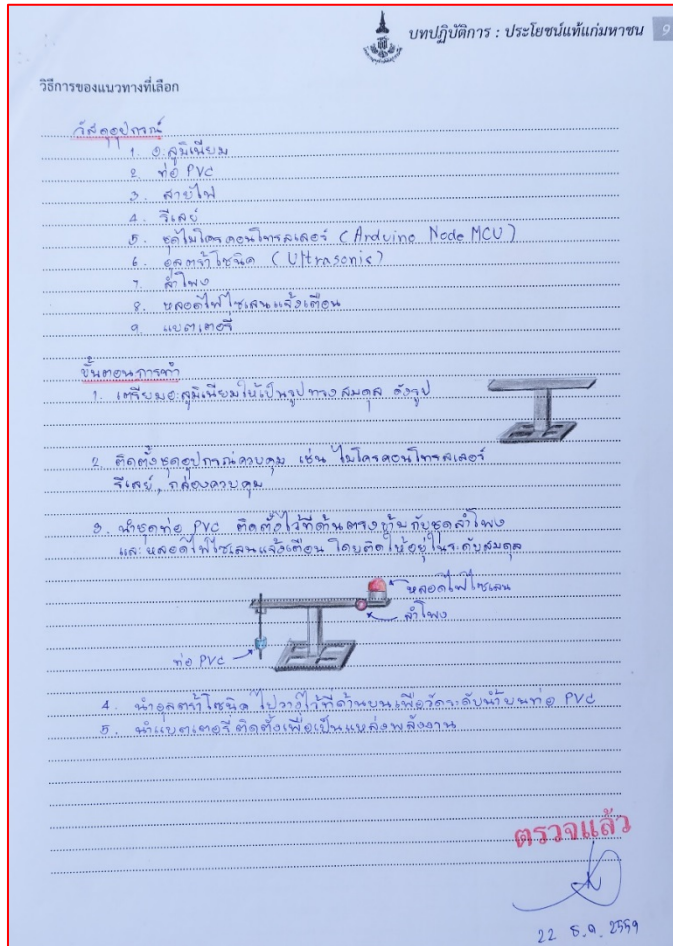 บทปฏิบัติการ : ประโยชน์แท้แก่มหาชน 9
วิธีการของแนวทางที่เลือก
วัสดุอุปกรณ์
1. อลูมิเนียม
2. ท่อ PVC
3. สายไฟ
4. รีเลย์
5. ชุดไมโครคอนโทรลเลอร์ (Arduino Node MCU)
6. อุลตร้าโซนิค (Ultrasonic)
7. ลำโพง
8. หลอดไฟไซเลนแจ้งเตือน
9. แบตเตอรี่
ขั้นตอนการทำ
1. เตรียมอะลูมิเนียมให้เป็นรูปทางสมดุล ดังรูป
2. ติดตั้งชุดอุปกรณ์ควบคุม เช่น ไมโครคอนโทรลเลอร์
รีเลย์, กล่องควบคุม
3. นำชุดท่อ PVC ติดตั้งไว้ที่ด้านตรงข้ามกับชุดลำโพง
และหลอดไฟไซเลนแจ้งเตือน โดยติดให้อยู่ในระดับสมดุล
หลอดไฟไซเลน
ลำโพง
ท่อ PVC
4. นำอุลตร้าโซนิค ไปวางไว้ที่ด้านบนเพื่อวัดระดับน้ำบนท่อ PVC
5. นำแบตเตอรี่ติดตั้งเพื่อเป็นแหล่งพลังงาน
ตรวจแล้ว
22 ธ.ค. 2559